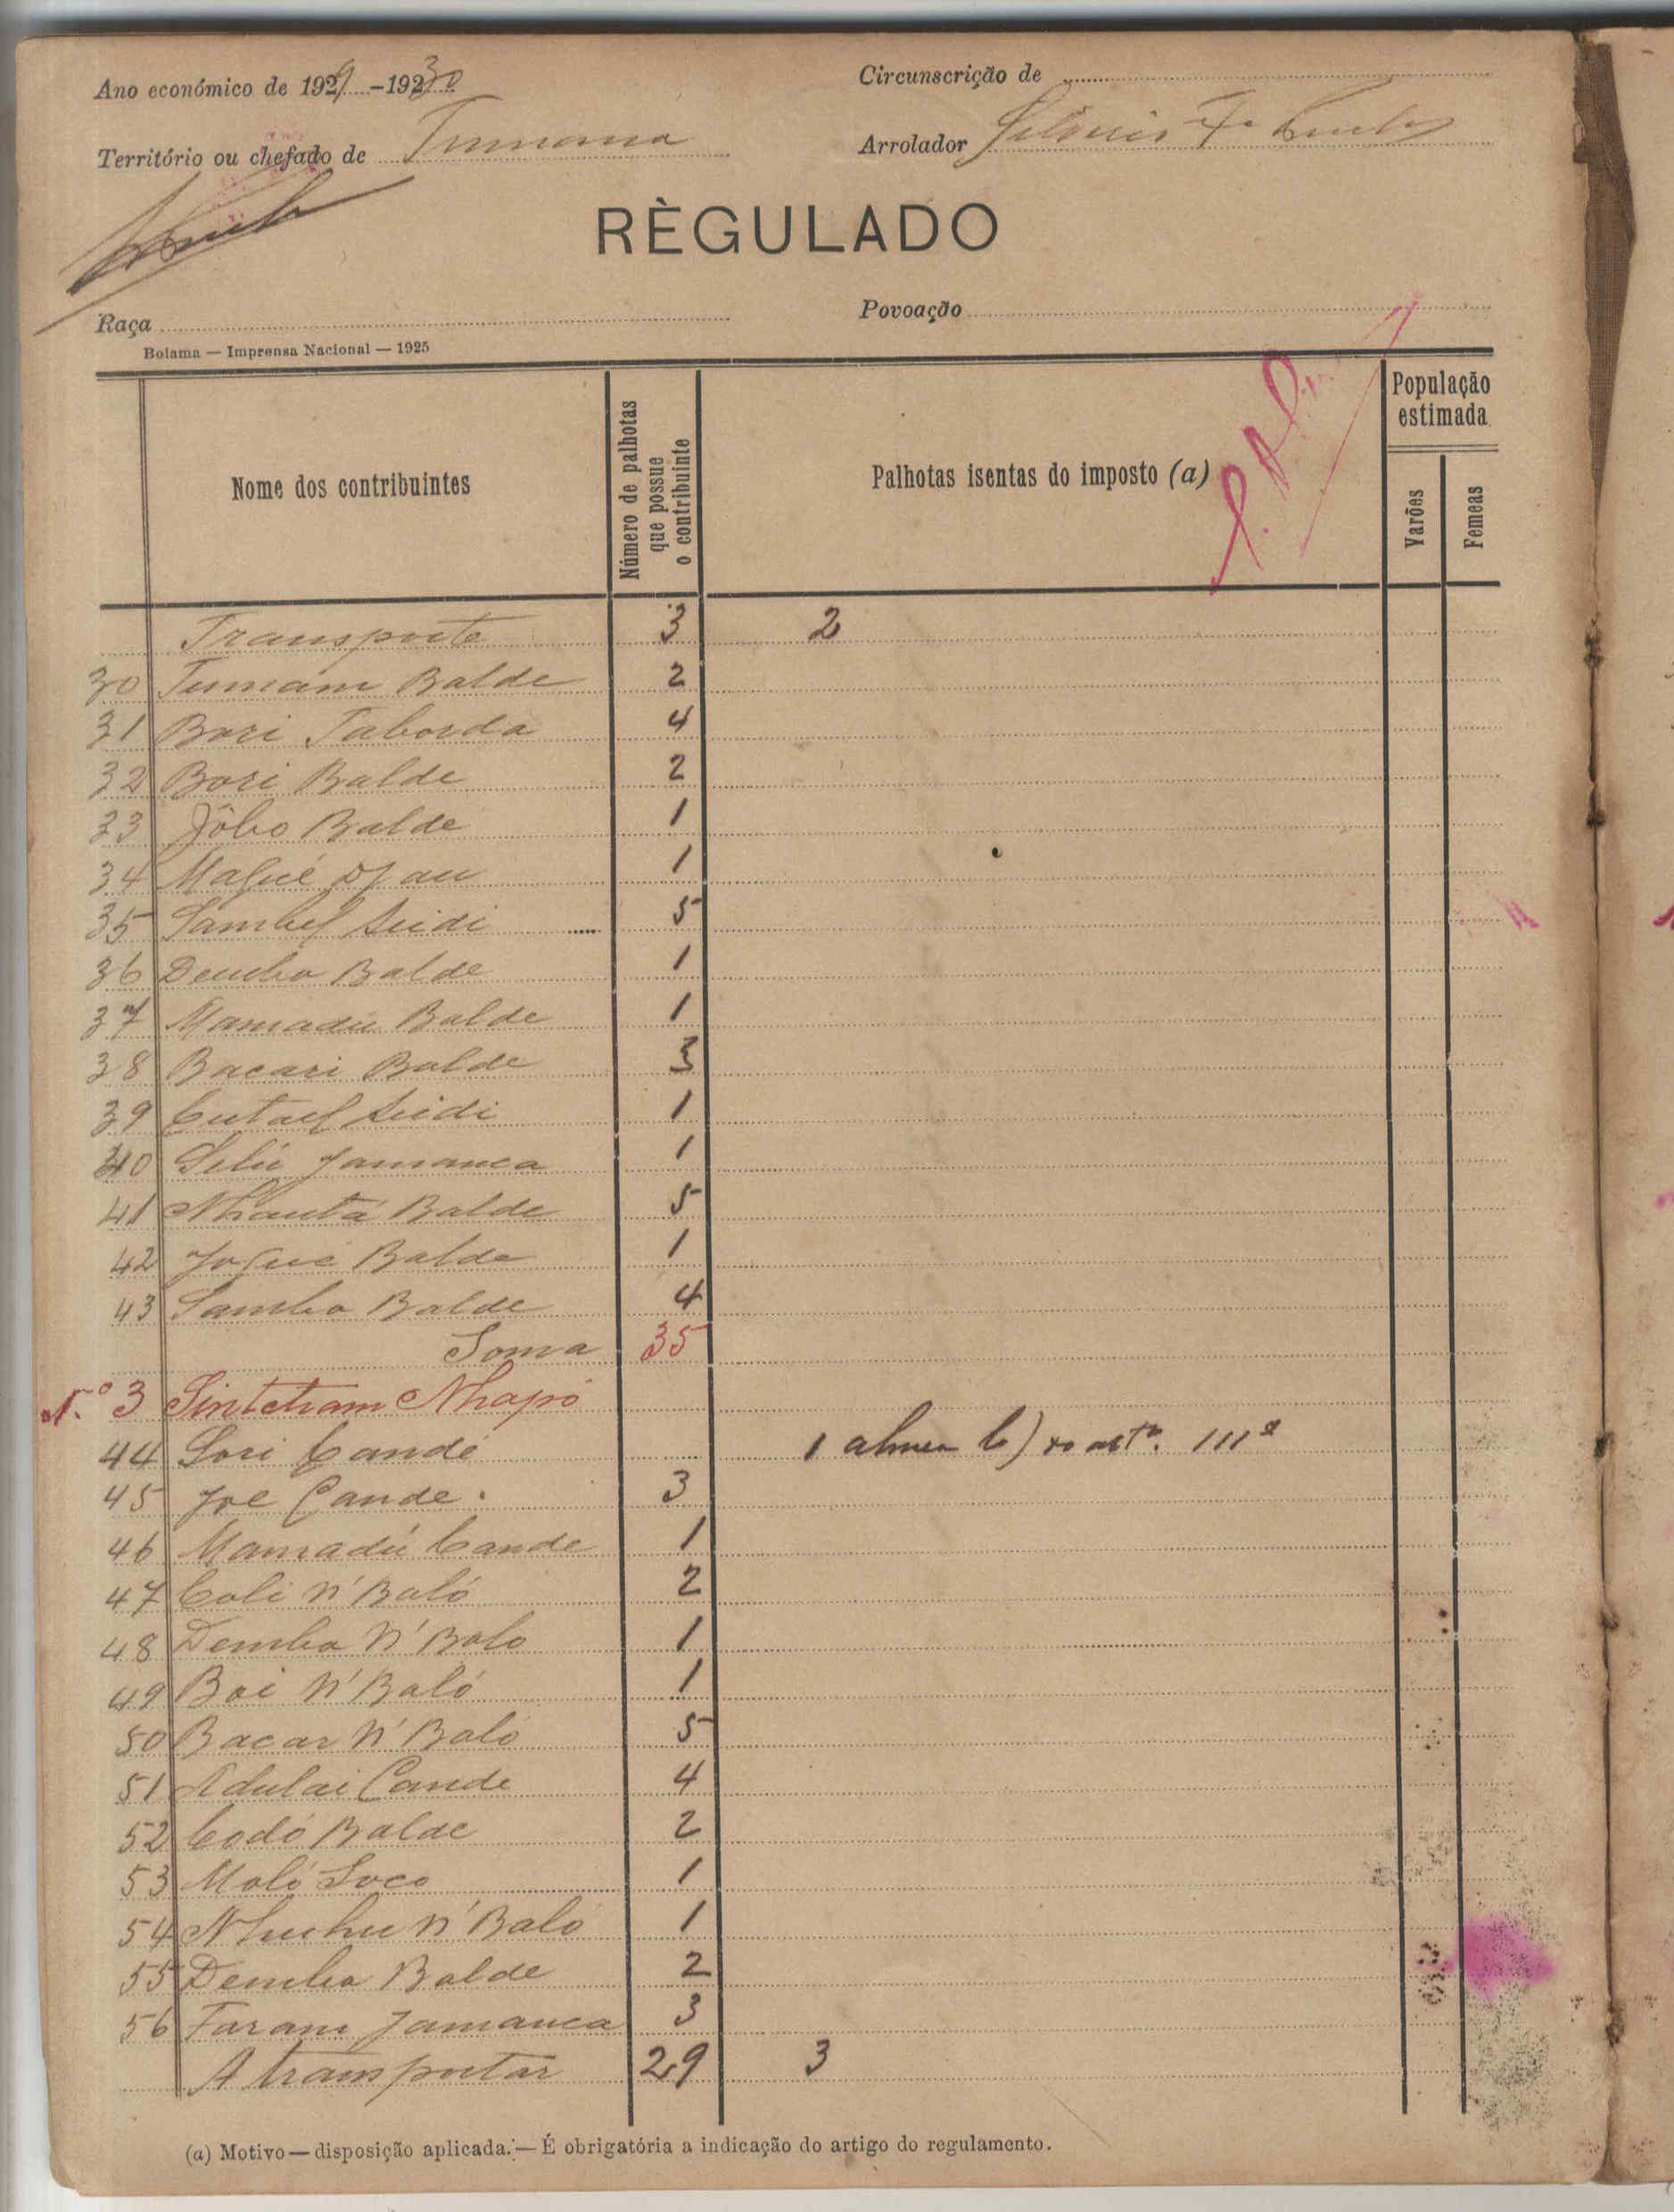 Ano económico de 1929 -1930
Circunscrição de
Território ou chefado de Tumana
Arrolador
RÈGULADO
Raça
Povoação
Bolama — Imprensa Nacional — 1925
Nome dos contribuintes
Número de palhotas que possue o contribuinte
Palhotas isentas do imposto (a)
População estimada
Varões
Femeas
Transporte 3 2
30 Tumam Balde 2
31 Bori Taborda 4
32 Bori Balde 2
33 Jôbo Balde 1
34 Mafué Djau 1
35 Sambel Seidi 5
36 Demba Balde 1
37 Mamadu Balde 1
38 Bacari Balde 3
39 Cutael Seidi 1
40 Selu Jamanca 1
41 Nhantá Balde 5
42 Jofué Balde 1
43 Samba Balde 4
Soma 35
N.º 3 Sintcham Nhapó
44 Sori Candé 1 alinea b) do artº. 111º
45 Joe Cande. 3
46 Mamadú Cande 1
47 Coli N'Baló 2
48 Demba N'Balo 1
49 Boi N'Baló 1
50 Bacar N'Baló 5
51 Adulai Cande 4
52 Codó Balde 2
53 Moló Soco 1
54 Nhuhu N'Baló 1
55 Demba Balde 2
56 Faram Jamanca 3
A transportar 29 3
(a) Motivo — disposição aplicada. — É obrigatória a indicação do artigo do regulamento.